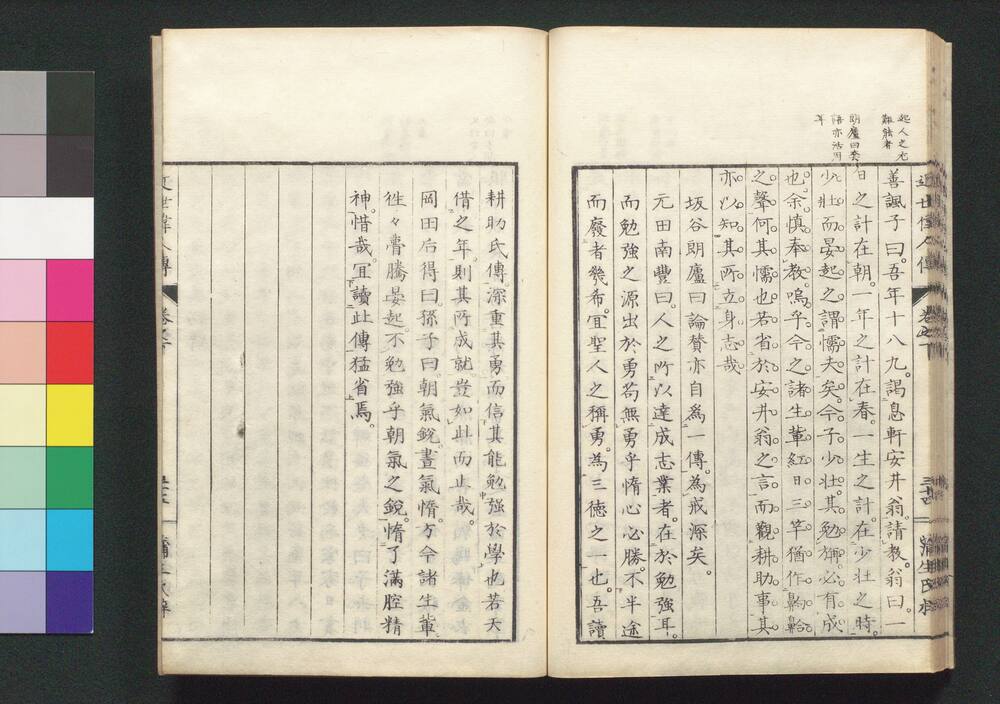 起人之尤
難能者
朗廬曰委
語亦活用
年
近世偉人傳
卷之下
蒲生氏梓
善諷子曰。吾年十八九。謁息軒安井翁。請教。翁曰。一
日之計在朝。一年之計在春。一生之計。在少壯之時。
少壯而晏起之謂懦夫矣。今子少壯。其勉旃。必有成
也。余慎奉教。嗚乎今之諸生輩。紅日三竿。猶作齁齡
之聲。何其懦也。若省於安井翁之言。而觀耕助事。其
亦以知其所立身志哉
坂谷朗廬曰論賛亦自為一傳。為戒深矣。
元田南豐曰。人之所以達成志業者。在於勉強耳。
而勉強之源出於勇。苟無勇乎惰心必勝。不半途
而廢者幾希。宜聖人之稱勇。為三德之一也。吾讀
耕助氏傳。深重其勇而信其能勉强於學也若天
借之年。則其所成就豈如此而止哉。
岡田后得曰。孫子曰。朝氣銳。晝氣惰。方今諸生輩
徃々瞢騰晏起。不勉強乎朝氣之銳。惰了滿腔精
神。惜哉。宜讀此傳猛省焉。